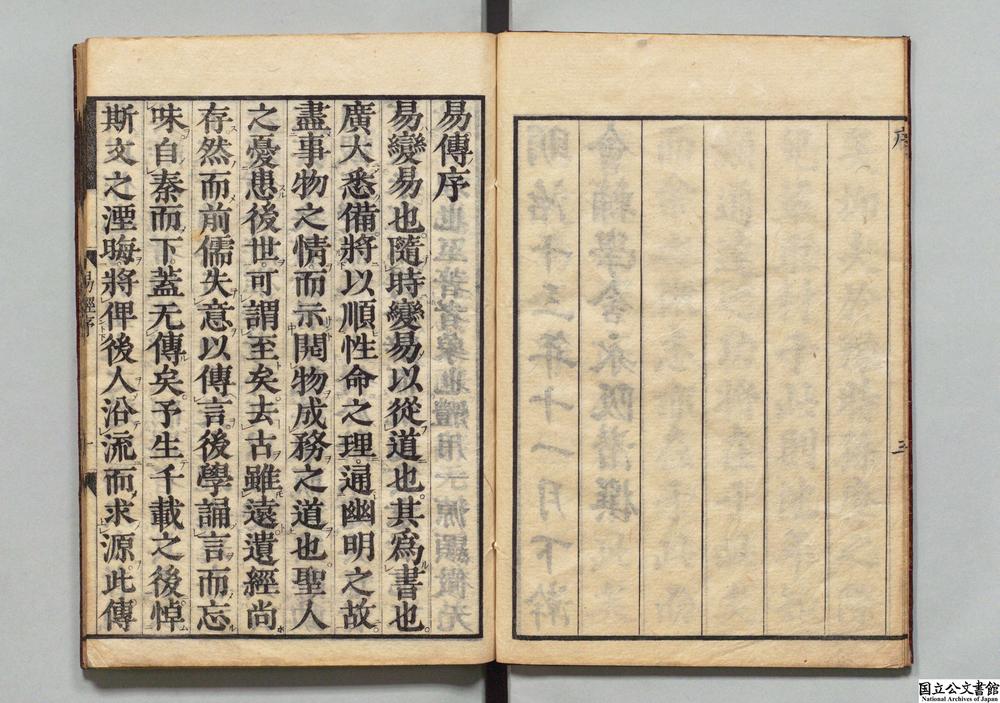 序
三
易傳序
易變易也隨時變易以從道也其爲書也
廣大悉備將以順性命之理通幽明之故
盡事物之情而示開物成務之道也聖人
之憂患後世可謂至矣去古雖遠遺經尚
存然而前儒失意以傳言後學誦言而忘
味自秦而下蓋无傳矣予生千載之後悼
斯文之湮晦將俾後人沿流而求源此傳
易經序
一
国立公文書館
National Archives of Japan